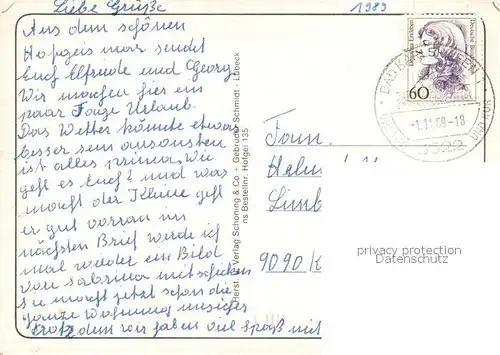 Liebe Grüße 1989
Aus dem schönen
Hofgeismar sendet
Euch Elfriede und Georg
Wir machen hier ein
paar Tage Urlaub.
Das Wetter könnte etwas
besser sein ansonsten
ist alles prima. Wie
geht es Euch? und was
macht der Kleine geht
er gut voran im
nächsten Brief werde ich
mal wieder ein Bild
von Sabrina mitschicken
sie macht jetzt schon die
ganze Wohnung unsicher
trotzdem wir haben viel Spaß mit
Herst. u. Verlag Schöning & Co + Gebrüder Schmidt · Lübeck
ns Bestellnr. Hofgei 135
60
BAD KARLSHAFEN 1
-1.11.89-18
UND KUR
3522
Fam.
Limb
9090 K
privacy protection
Datenschutz